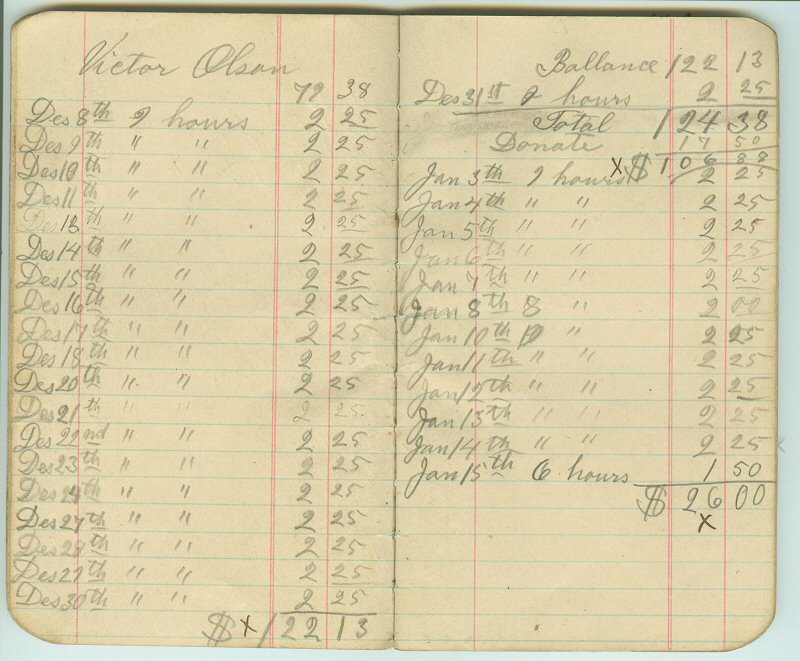 Victor Olson
79 38
Des 8th 9 hours 2 25
Des 9th " " 2 25
Des 10th " " 2 25
Des 11th " " 2 25
Des 13th " " 2 25
Des 14th " " 2 25
Des 15th " " 2 25
Des 16th " " 2 25
Des 17th " " 2 25
Des 18th " " 2 25
Des 20th " " 2 25
Des 21th " " 2 25
Des 22nd " " 2 25
Des 23th " " 2 25
Des 24th " " 2 25
Des 27th " " 2 25
Des 28th " " 2 25
Des 29th " " 2 25
Des 30th " " 2 25
$ x 122 13
Ballance 122 13
Des 31st 9 hours 2 25
Total 124 38
Donate 17 50
x $ 106 88
Jan 3th 9 hours 2 25
Jan 4th " " 2 25
Jan 5th " " 2 25
Jan 6th " " 2 25
Jan 7th " " 2 25
Jan 8th 8 " 2 00
Jan 10th 9 " 2 25
Jan 11th " " 2 25
Jan 12th " " 2 25
Jan 13th " " 2 25
Jan 14th " " 2 25
Jan 15th 6 hours 1 50
$ 26 00
x